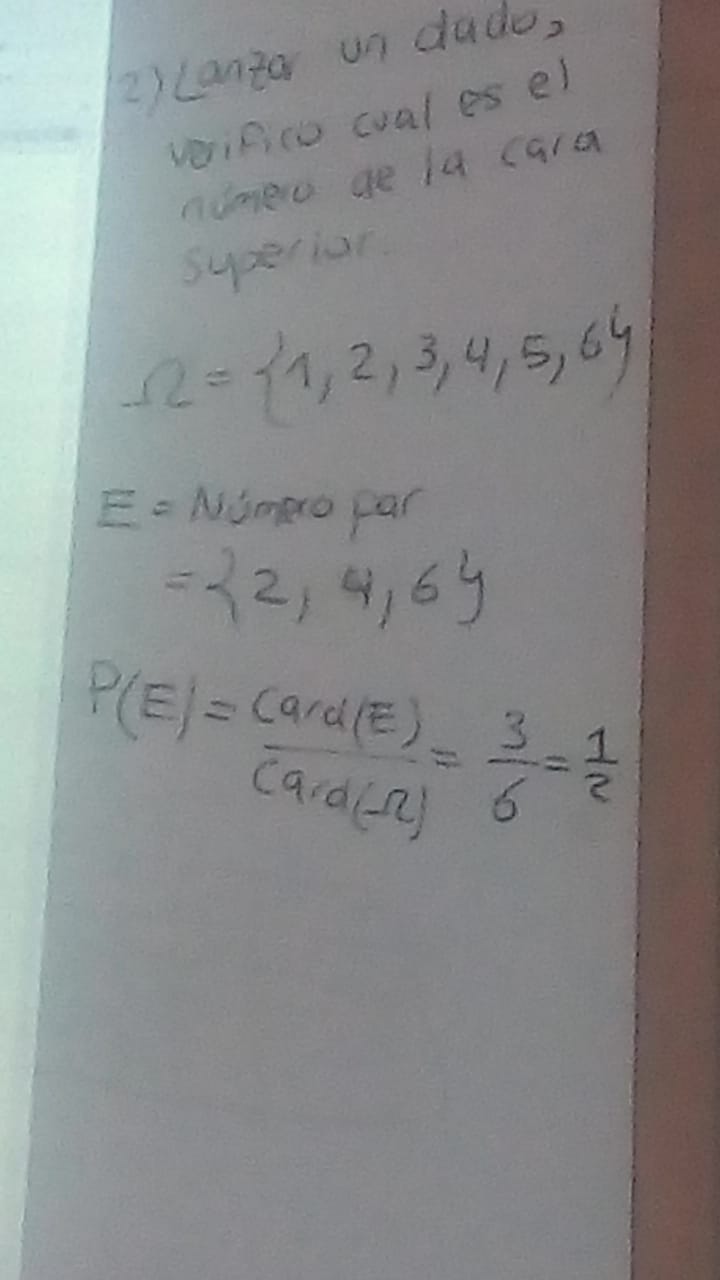 2) Lanzar un dado,
verifico cual es el
número de la cara
superior.
Ω = {1, 2, 3, 4, 5, 6}
E = Número par
= {2, 4, 6}
P(E) = Card(E) / Card(Ω) = 3/6 = 1/2